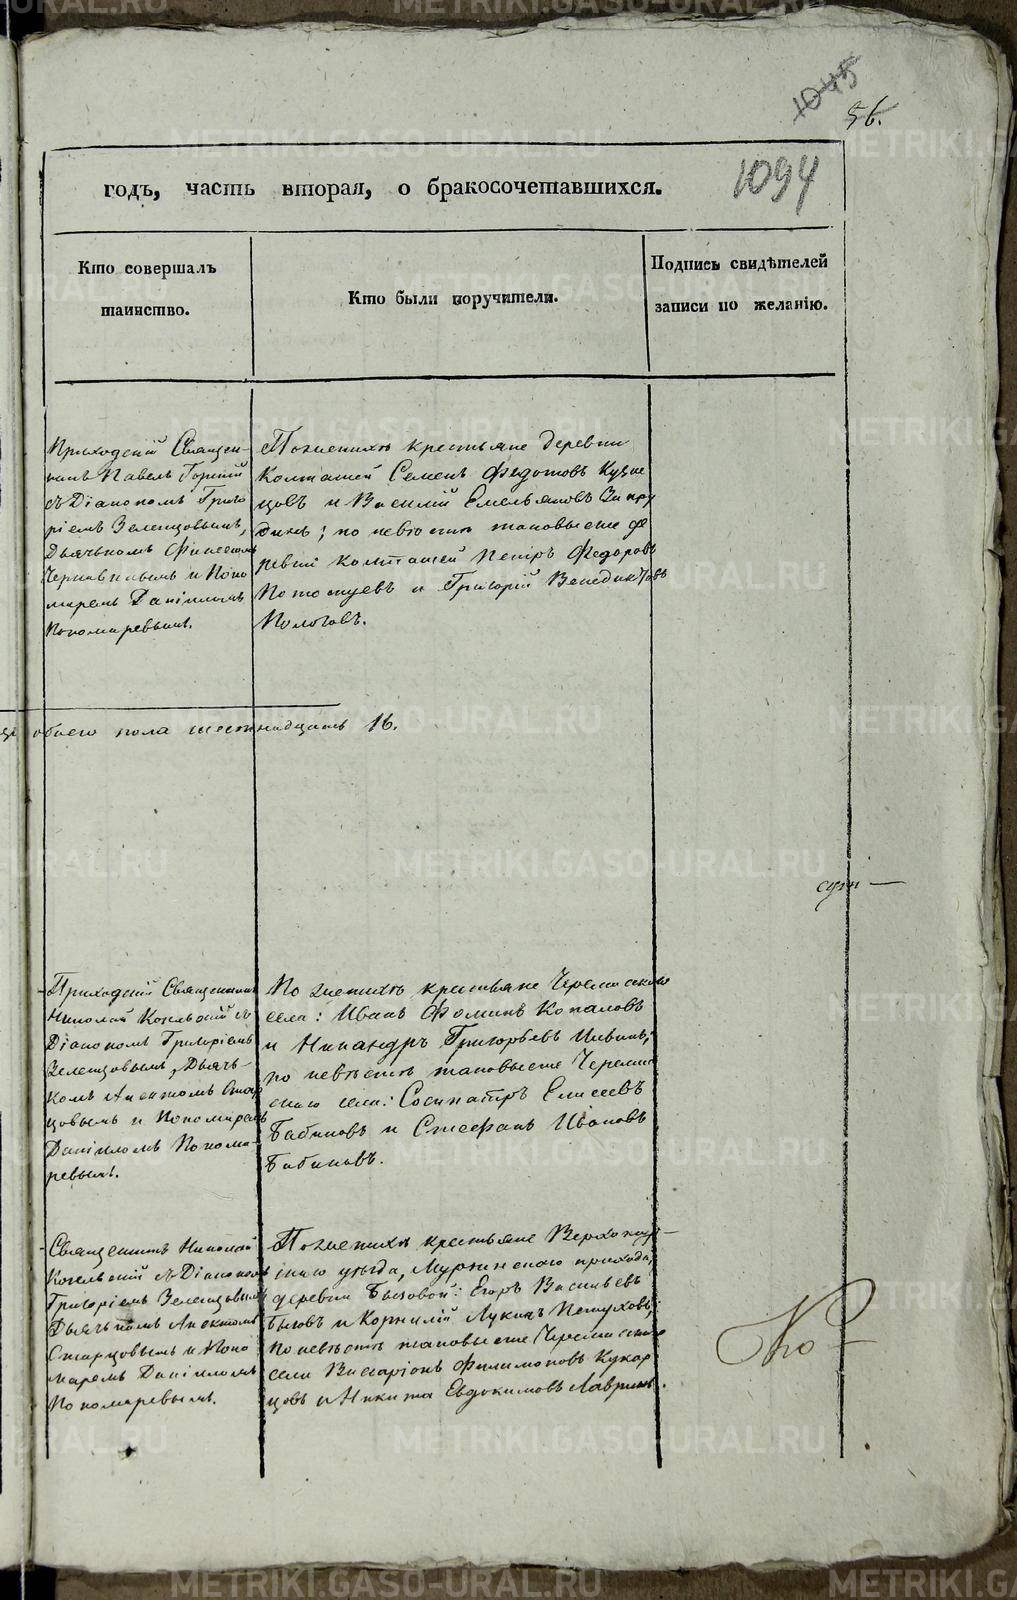 1045
56.
1094
годъ, часть вторая, о бракосочетавшихся.
Кто совершалъ
таинство.
Кто были поручители.
Подпись свидѣтелей
записи по желанію.
Приходскій Священ-
никъ Павелъ Горный
съ Діакономъ Григо
ріемъ Зеленцовымъ,
Дьячькомъ
и Поно
маремъ Даніиломъ
Пономаревымъ.
По женихѣ крестьяне деревни
Колташей Семенъ Федотовъ Кузне
цовъ и Василій Емельяновъ Запру
динъ; по невѣстѣ таковые же де
ревни Колташей Петръ Федоровъ
Потоскуевъ и Григорій Венедиктовъ
Пологовъ.
обоего пола шестнадцать 16.
Приходскій Священникъ
Николай Козельскій съ
Діакономъ Григоріемъ
Зеленцовымъ, Дьячь-
комъ Старцовымъ и Пономаремъ
Даніиломъ Понома-
ревымъ.
По женихѣ крестьяне Черемисскаго
села: Иванъ Фоминъ Копаловъ
и Никандръ Григорьевъ
по невѣстѣ таковые же Черемис
скаго села: Сосипатръ Елисеевъ
Бабиновъ и Стефанъ Ивановъ
Бабиновъ.
Священникъ Николай
Козельскій съ Діакономъ
Григоріемъ Зеленцовымъ
Дьячькомъ
Старцовымъ и Поно
маремъ Даніиломъ
Пономаревымъ.
По женихѣ крестьяне Верхотур-
скаго уѣзда, Мурзинскаго прихода,
деревни Бызовой: Егоръ Васильевъ
Бызовъ и Корнилій Лукинъ Петуховъ;
по невѣстѣ таковые же Черемисскаго
села Виссаріонъ Филимоновъ Кукар
цовъ и Никита Евдокимовъ Лавринъ.
METRIKI.GASO-URAL.RU